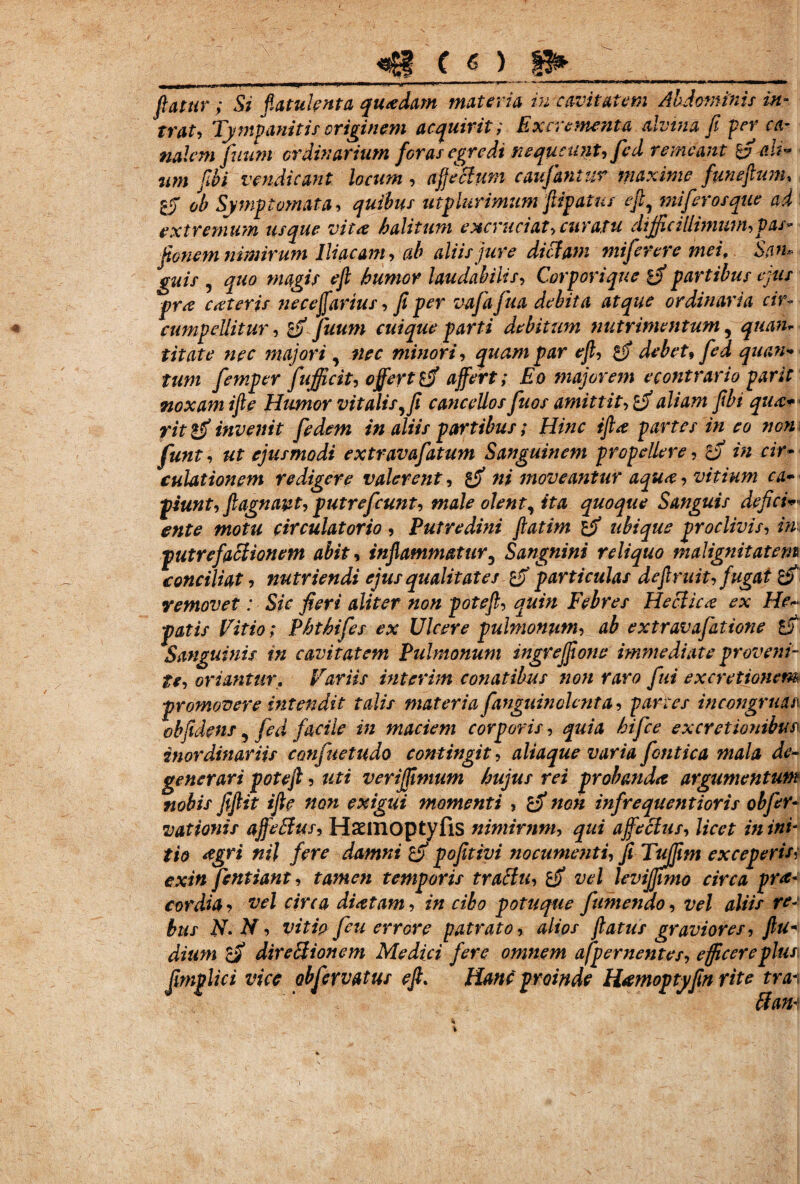 ( 6 )
ſtatur ; Si flatulenta quædam materia in cavitatem Abdominis in-
trat, Tympanitis originem acquirit ; Excrementa alvina ſi per ca-
nalem ſuum ordinarium foras egredi nequeunt, ſed remeant & ali-
um ſibi vendicant locum , affectum cauſantur maxime funeſtum,
& ob Symptomata , quibus utplurimum ſtipatus eſt, miſerosque ad
extremum usque vitæ halitum excruciat, curatu difficillimum, pas-
ſionem nimirum Iliacam, ab aliis jure dictam miſerere mei. San-
guis , quo magis eſt humor laudabilis, Corporique & partibus ejus
præ cæteris neceſſarius , ſi per vaſa ſua debita atque ordinaria cir-
cumpellitur , & ſuum cuique parti debitum nutrimentum , quan-
titate nec majori , nec minori , quam par eſt, & debet, ſed quan-
tum ſemper ſufficit, offert & affert ; Eo majorem econtrario parit
noxam iſte Humor vitalis, ſi cancellos ſuos amittit, & aliam ſibi quæ-
rit & invenit ſedem in aliis partibus ; Hinc iſtæ partes in eo non
ſunt , ut ejusmodi extravaſatum Sanguinem propellere , & in cir-
culationem redigere valerent , & ni moveantur aquæ , vitium ca-
piunt, ſtagnant, putreſcunt, male olent, ita quoque Sanguis defici-
ente motu circulatorio , Putredini ſtatim & ubique proclivis, in
putrefactionem abit , inflammatur, Sangnini reliquo malignitatem
conciliat , nutriendi ejus qualitates & particulas deſtruit, fugat &
removet : Sic fieri aliter non poteſt, quin Febres Hecticæ ex He-
patis Vitio ; Phthiſes ex Ulcere pulmonum, ab extravaſatione &
Sanguinis in cavitatem Pulmonum ingreſſione immediate proveni-
te, oriantur. Variis interim conatibus non raro ſui excretionem
promovere intendit talis materia ſanguinolenta , partes incongruas
obſidens , ſed facile in maciem corporis , quia hiſce excretionibus
inordinariis conſuetudo contingit , aliaque varia ſontica mala de-
generari poteſt , uti veriſſimum hujus rei probandæ argumentum
nobis ſiſtit iſte non exigui momenti , & non infrequentioris obſer-
vationis affectus, Hæmoptyſis nimirnm, qui affectus, licet in ini-
tio ægri nil fere damni & poſitivi nocumenti, ſi Tuſſim exceperis,
exin ſentiant , tamen temporis tractu, & vel leviſſimo circa præ-
cordia , vel circa diætam , in cibo potuque ſumendo , vel aliis re-
bus N. N , vitio ſeu errore patrato , alios ſtatus graviores, ſtu-
dium & directionem Medici fere omnem aſpernentes, efficere plus
ſimplici vice obſervatus eſt. Hanc proinde Hæmoptyſin rite tra-
ctan-